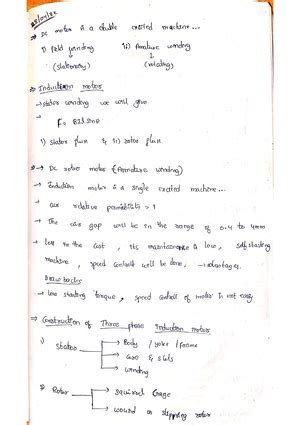 ⇒ Dc motor is a double excited machine...
i) field winding ii) Armature winding
↓ ↓
(stationary) (rotating)
⇒ Induction motor
→ stator winding we will give
F = BIl sinθ
i) Stator flux & ii) rotor flux
→ Dc rotor motor (Armature winding)
→ Induction motor is a single excited machine...
→ air relative permeability = 1
→ The air gap will be in the range of 0.4 to 4mm
→ less in the cost, its maintanance is low, self starting
machine, speed control will be done. → advantages.
Drawbacks
→ low starting torque, speed control of motor is not easy.
⇒ Construction of Three phase Induction motor
i) Stator → Body / yoke / frame
→ core & slots
→ winding
ii) Rotor → squirrel cage
→ wound or slipping rotor